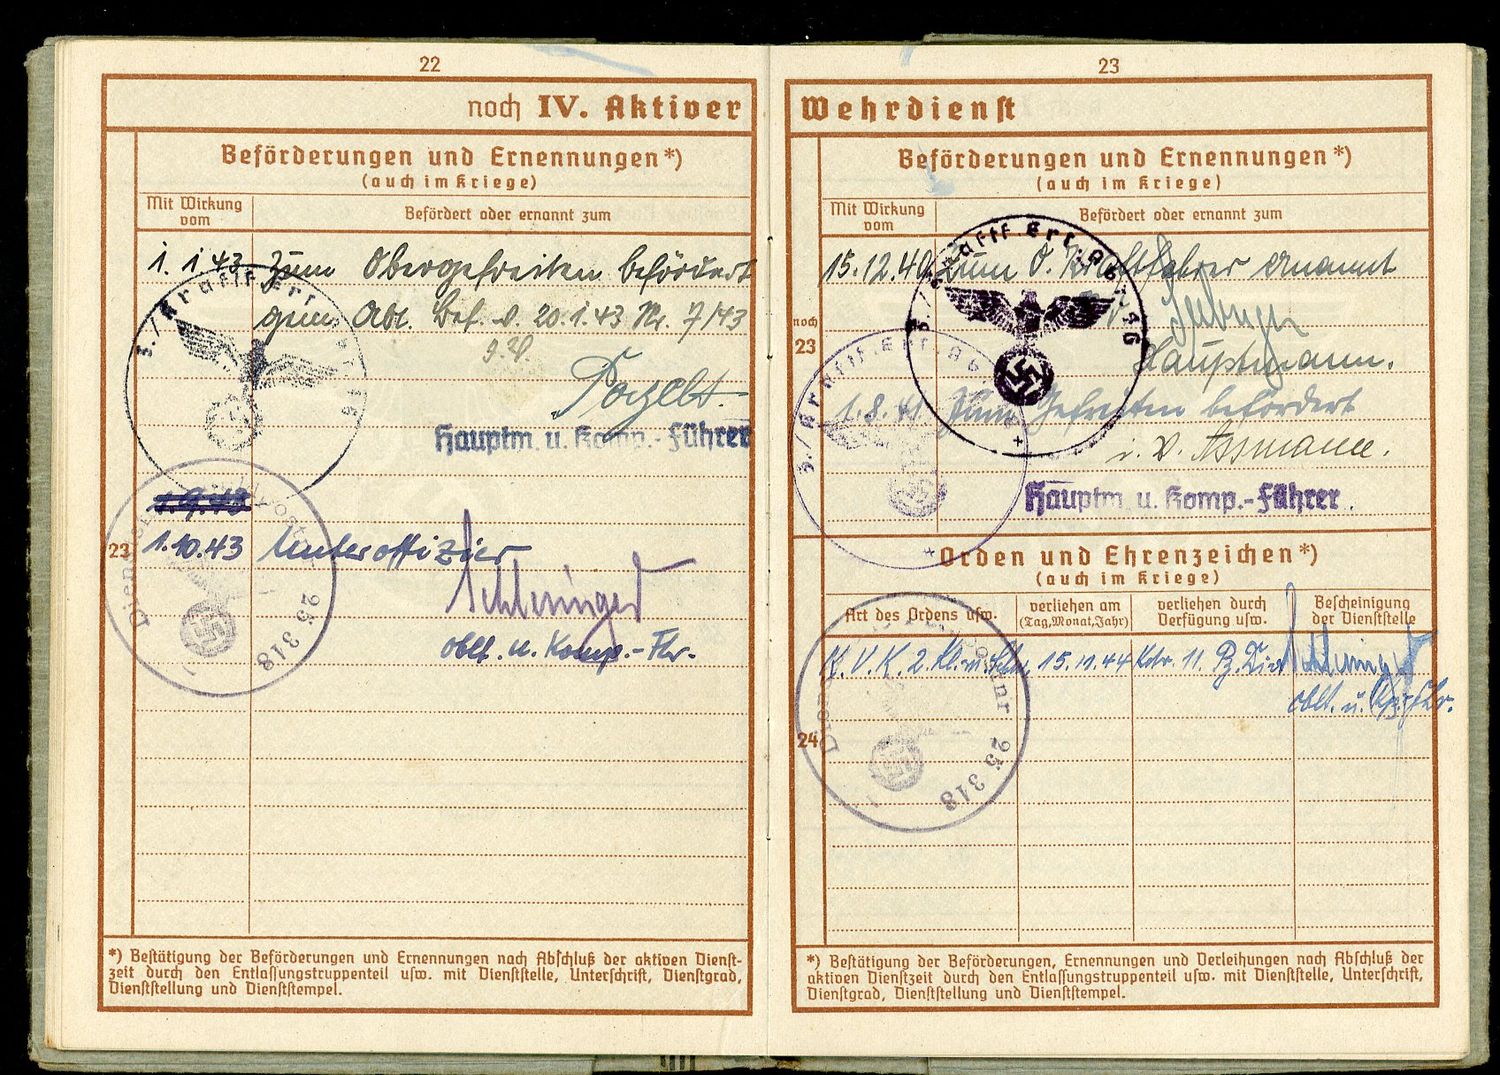 22
noch IV. Aktiver
Beförderungen und Ernennungen*)
(auch im Kriege)
Mit Wirkung vom
Befördert oder ernannt zum
1. 1 43 Zum Obergefreiten befördert
gem. Abt. Bef. v. 20.1.43 Nr. 7/43
Hauptm. u. Komp.-Führer
1.9.43
23
1.10.43 Unteroffizier
Schleringer
Oblt. u. Komp.-Fhr.
3./Kraftf. Ers. Abt.
Dienst
25 318
*) Bestätigung der Beförderungen und Ernennungen nach Abschluß der aktiven Dienst-
zeit durch den Entlassungstruppenteil usw. mit Dienststelle, Unterschrift, Dienstgrad,
Dienststellung und Dienststempel.
23
Wehrdienst
Beförderungen und Ernennungen*)
(auch im Kriege)
Mit Wirkung vom
Befördert oder ernannt zum
15.12.40 Zum O. Kraftfahrer ernannt
noch
23
Hauptmann.
1.8.41 Zum Gefreiten befördert
i. V. Assmann.
Hauptm. u. Komp.-Führer
Orden und Ehrenzeichen*)
(auch im Kriege)
Art des Ordens usw.
verliehen am (Tag, Monat, Jahr)
verliehen durch Verfügung usw.
Bescheinigung der Dienststelle
K. V. K. 2. Kl. 15.11.44 Kdr. 11. Pz. Div. Schleringer
Oblt. u. Kp.-Fhr.
24
25 318
*) Bestätigung der Beförderungen, Ernennungen und Verleihungen nach Abschluß der
aktiven Dienstzeit durch den Entlassungstruppenteil usw. mit Dienststelle, Unterschrift,
Dienstgrad, Dienststellung und Dienststempel.